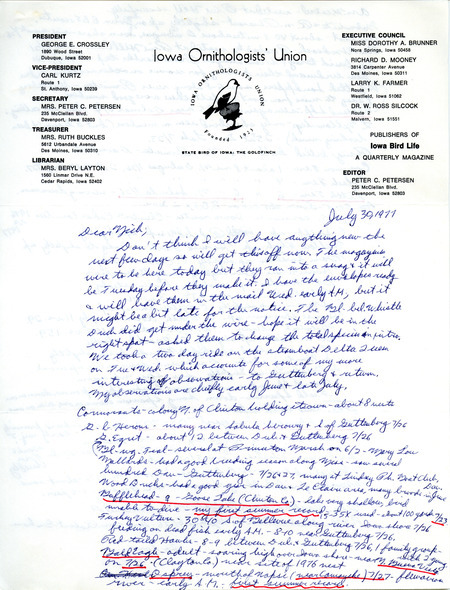 PRESIDENT
GEORGE E. CROSSLEY
1890 Wood Street
Dubuque, Iowa 52001
VICE-PRESIDENT
CARL KURTZ
Route 1
St. Anthony, Iowa 50239
SECRETARY
MRS. PETER C. PETERSEN
235 McClellan Blvd.
Davenport, Iowa 52803
TREASURER
MRS. RUTH BUCKLES
5612 Urbandale Avenue
Des Moines, Iowa 50310
LIBRARIAN
MRS. BERYL LAYTON
1560 Linmar Drive N.E.
Cedar Rapids, Iowa 52402
Iowa Ornithologists' Union
IOWA ORNITHOLOGISTS UNION
Founded 1923
STATE BIRD OF IOWA: THE GOLDFINCH
EXECUTIVE COUNCIL
MISS DOROTHY A. BRUNNER
Nora Springs, Iowa 50458
RICHARD D. MOONEY
3814 Carpenter Avenue
Des Moines, Iowa 50311
LARRY K. FARMER
Route 1
Westfield, Iowa 51062
DR. W. ROSS SILCOCK
Route 2
Malvern, Iowa 51551
PUBLISHERS OF
Iowa Bird Life
A QUARTERLY MAGAZINE
EDITOR
PETER C. PETERSEN
235 McClellan Blvd.
Davenport, Iowa 52803
July 30, 1977
Dear Nick,
Don't think I will have anything new the
next few days so will get this off now. The magazines
were to be here today but they ran into a snag & it will
be Tuesday before they make it. I have the envelopes ready
& will have them in the mail Wed. early AM, but it
might be a bit late for the notice. The Bl-bel. Whistle
Duck did get under the wire - hope it will be in the
right spot - asked them to change the total species in intro.
We took a two day ride on the steamboat Delta Queen
on Tue & Wed. which accounts for some of my more
interesting observations - to Guttenberg & return.
My observations are chiefly early June & late July.
Cormorants - colony N. of Clinton holding its own - about 8 nests
G. b. Herons - many near Sabula & many of Guttenberg 7/26
G. Egret - about 12 between Dub & Guttenberg 7/26
Bl-wg. Teal - several at Princeton Marsh on 6/2 -
Mallards - had a good breeding season along Miss - saw several
hundred - Guttenberg - 7/26-27, many at Club,
Wood Ducks - had a good year in Dav - Le Claire area, many broods
Bufflehead - ♀ - Goose Lake (Clinton Co.) - shallow, bird
unable to dive - my first summer record 7/23
Turkey Vulture - 30 of Bellevue along river Iowa shore 7/26
feeding on dead fish early A.M. - 8-10 near Guttenberg 7/26,
Red-tailed Hawks - 8-9 between Dub & Guttenberg 7/26, 1 family group
Bald Eagle - adult - soaring high over Iowa shore - near N. Buena Vista
on 7/26 (Clayton Co) near site of 1976 nest
Osprey - mouth of Wapsi (near Camanche) 7/27 - flew across
river - early A.M. - first summer record